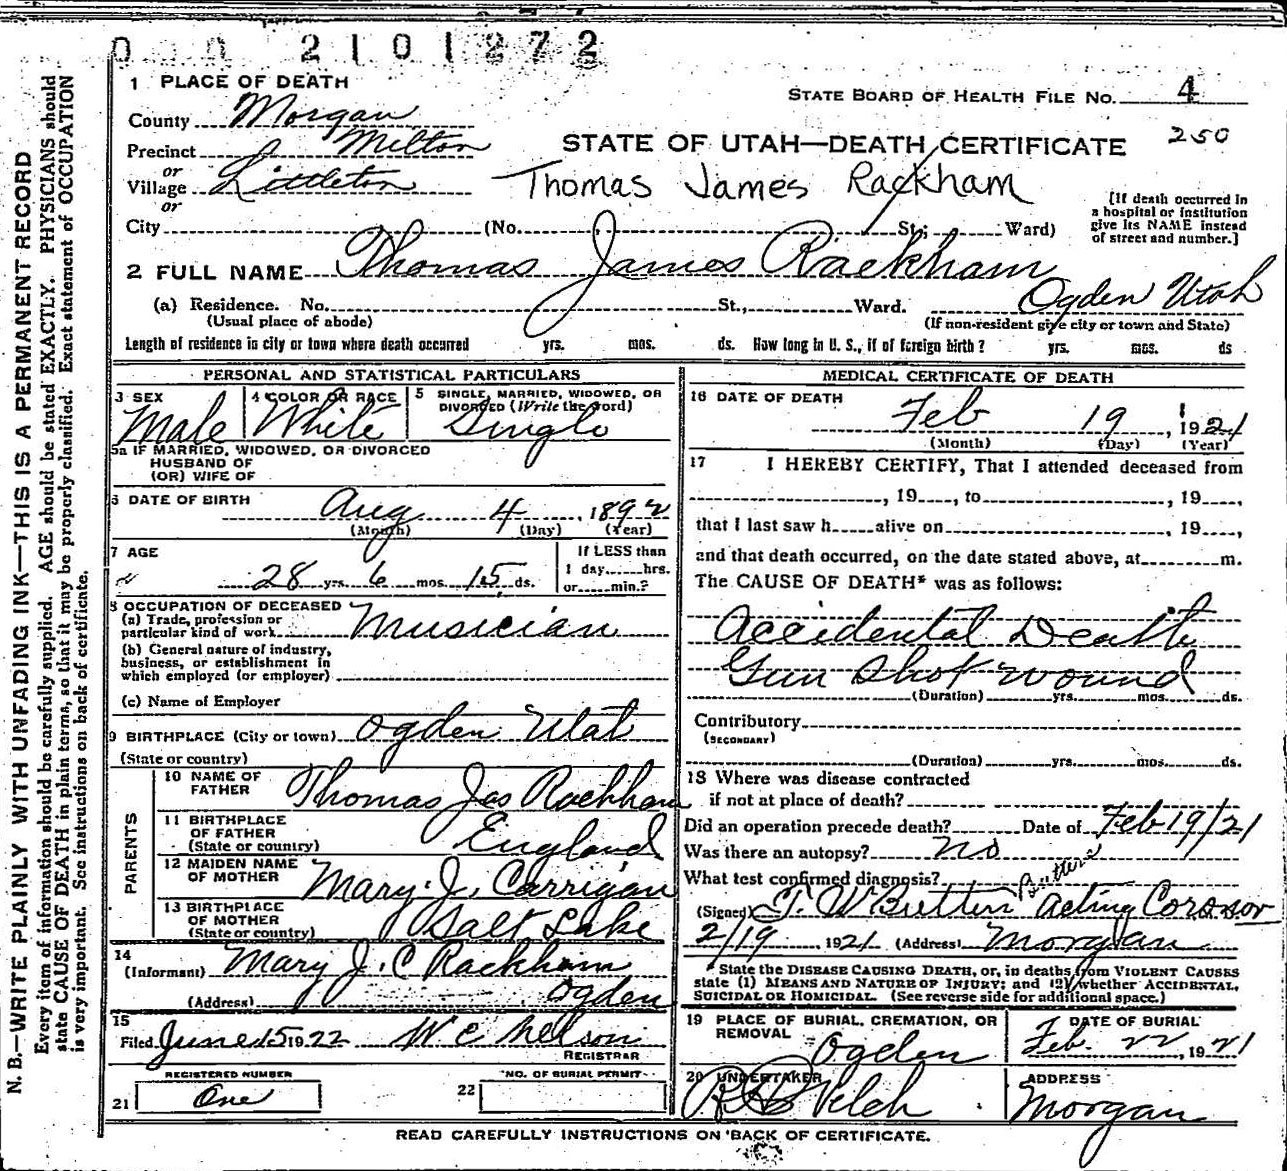 0 0 0 2 1 0 1 2 7 2
1 PLACE OF DEATH
STATE BOARD OF HEALTH FILE NO. 4
County Morgan
250
Precinct Milton
STATE OF UTAH—DEATH CERTIFICATE
or
Village Littleton
Thomas James Rackham
or
[If death occurred in a hospital or institution give its NAME instead of street and number.]
City (No. St; Ward)
2 FULL NAME Thomas James Rackham
(a) Residence. No. St., Ward. Ogden Utah
(Usual place of abode) (If non-resident give city or town and State)
Length of residence in city or town where death occurred yrs. mos. ds. How long in U. S., if of foreign birth? yrs. mos. ds
PERSONAL AND STATISTICAL PARTICULARS
3 SEX 4 COLOR OR RACE 5 SINGLE, MARRIED, WIDOWED, OR DIVORCED (Write the word)
Male White Single
5a IF MARRIED, WIDOWED, OR DIVORCED
HUSBAND OF
(OR) WIFE OF
6 DATE OF BIRTH Aug 4, 1892
(Month) (Day) (Year)
7 AGE
28 yrs. 6 mos. 15 ds.
If LESS than
1 day, hrs.
or min.?
8 OCCUPATION OF DECEASED
(a) Trade, profession or
particular kind of work Musician
(b) General nature of industry,
business, or establishment in
which employed (or employer)
(c) Name of Employer
9 BIRTHPLACE (City or town) Ogden Utah
(State or country)
PARENTS
10 NAME OF
FATHER Thomas Jas Rackham
11 BIRTHPLACE
OF FATHER
(State or country) England
12 MAIDEN NAME
OF MOTHER Mary J. Carrigan
13 BIRTHPLACE
OF MOTHER
(State or country) Salt Lake
14
(Informant) Mary J. C Rackham
(Address) Ogden
15
Filed June 15 1922 W C Nelson
REGISTRAR
REGISTERED NUMBER NO. OF BURIAL PERMIT
21 One 22
MEDICAL CERTIFICATE OF DEATH
16 DATE OF DEATH
Feb 19, 1921
(Month) (Day) (Year)
17 I HEREBY CERTIFY, That I attended deceased from
, 19 , to , 19 ,
that I last saw h alive on , 19 ,
and that death occurred, on the date stated above, at m.
The CAUSE OF DEATH* was as follows:
Accidental Death
Gun Shot wound
(Duration) yrs. mos. ds.
Contributory
(SECONDARY)
(Duration) yrs. mos. ds.
18 Where was disease contracted
if not at place of death?
Did an operation precede death? Date of Feb 19/21
Was there an autopsy? no
What test confirmed diagnosis?
(Signed) T. W Butters Acting Coronor
2/19, 1921 (Address) Morgan
* State the DISEASE CAUSING DEATH, or, in deaths from VIOLENT CAUSES
state (1) MEANS AND NATURE OF INJURY; and (2) whether ACCIDENTAL,
SUICIDAL or HOMICIDAL. (See reverse side for additional space.)
19 PLACE OF BURIAL, CREMATION, OR
REMOVAL
Ogden
DATE OF BURIAL
Feb. 22, 1921
20 UNDERTAKER
Welch
ADDRESS
Morgan
READ CAREFULLY INSTRUCTIONS ON BACK OF CERTIFICATE.
N. B.—WRITE PLAINLY WITH UNFADING INK—THIS IS A PERMANENT RECORD
Every item of information should be carefully supplied. AGE should be stated EXACTLY. PHYSICIANS should
state CAUSE OF DEATH in plain terms, so that it may be properly classified. Exact statement of OCCUPATION
is very important. See instructions on back of certificate.